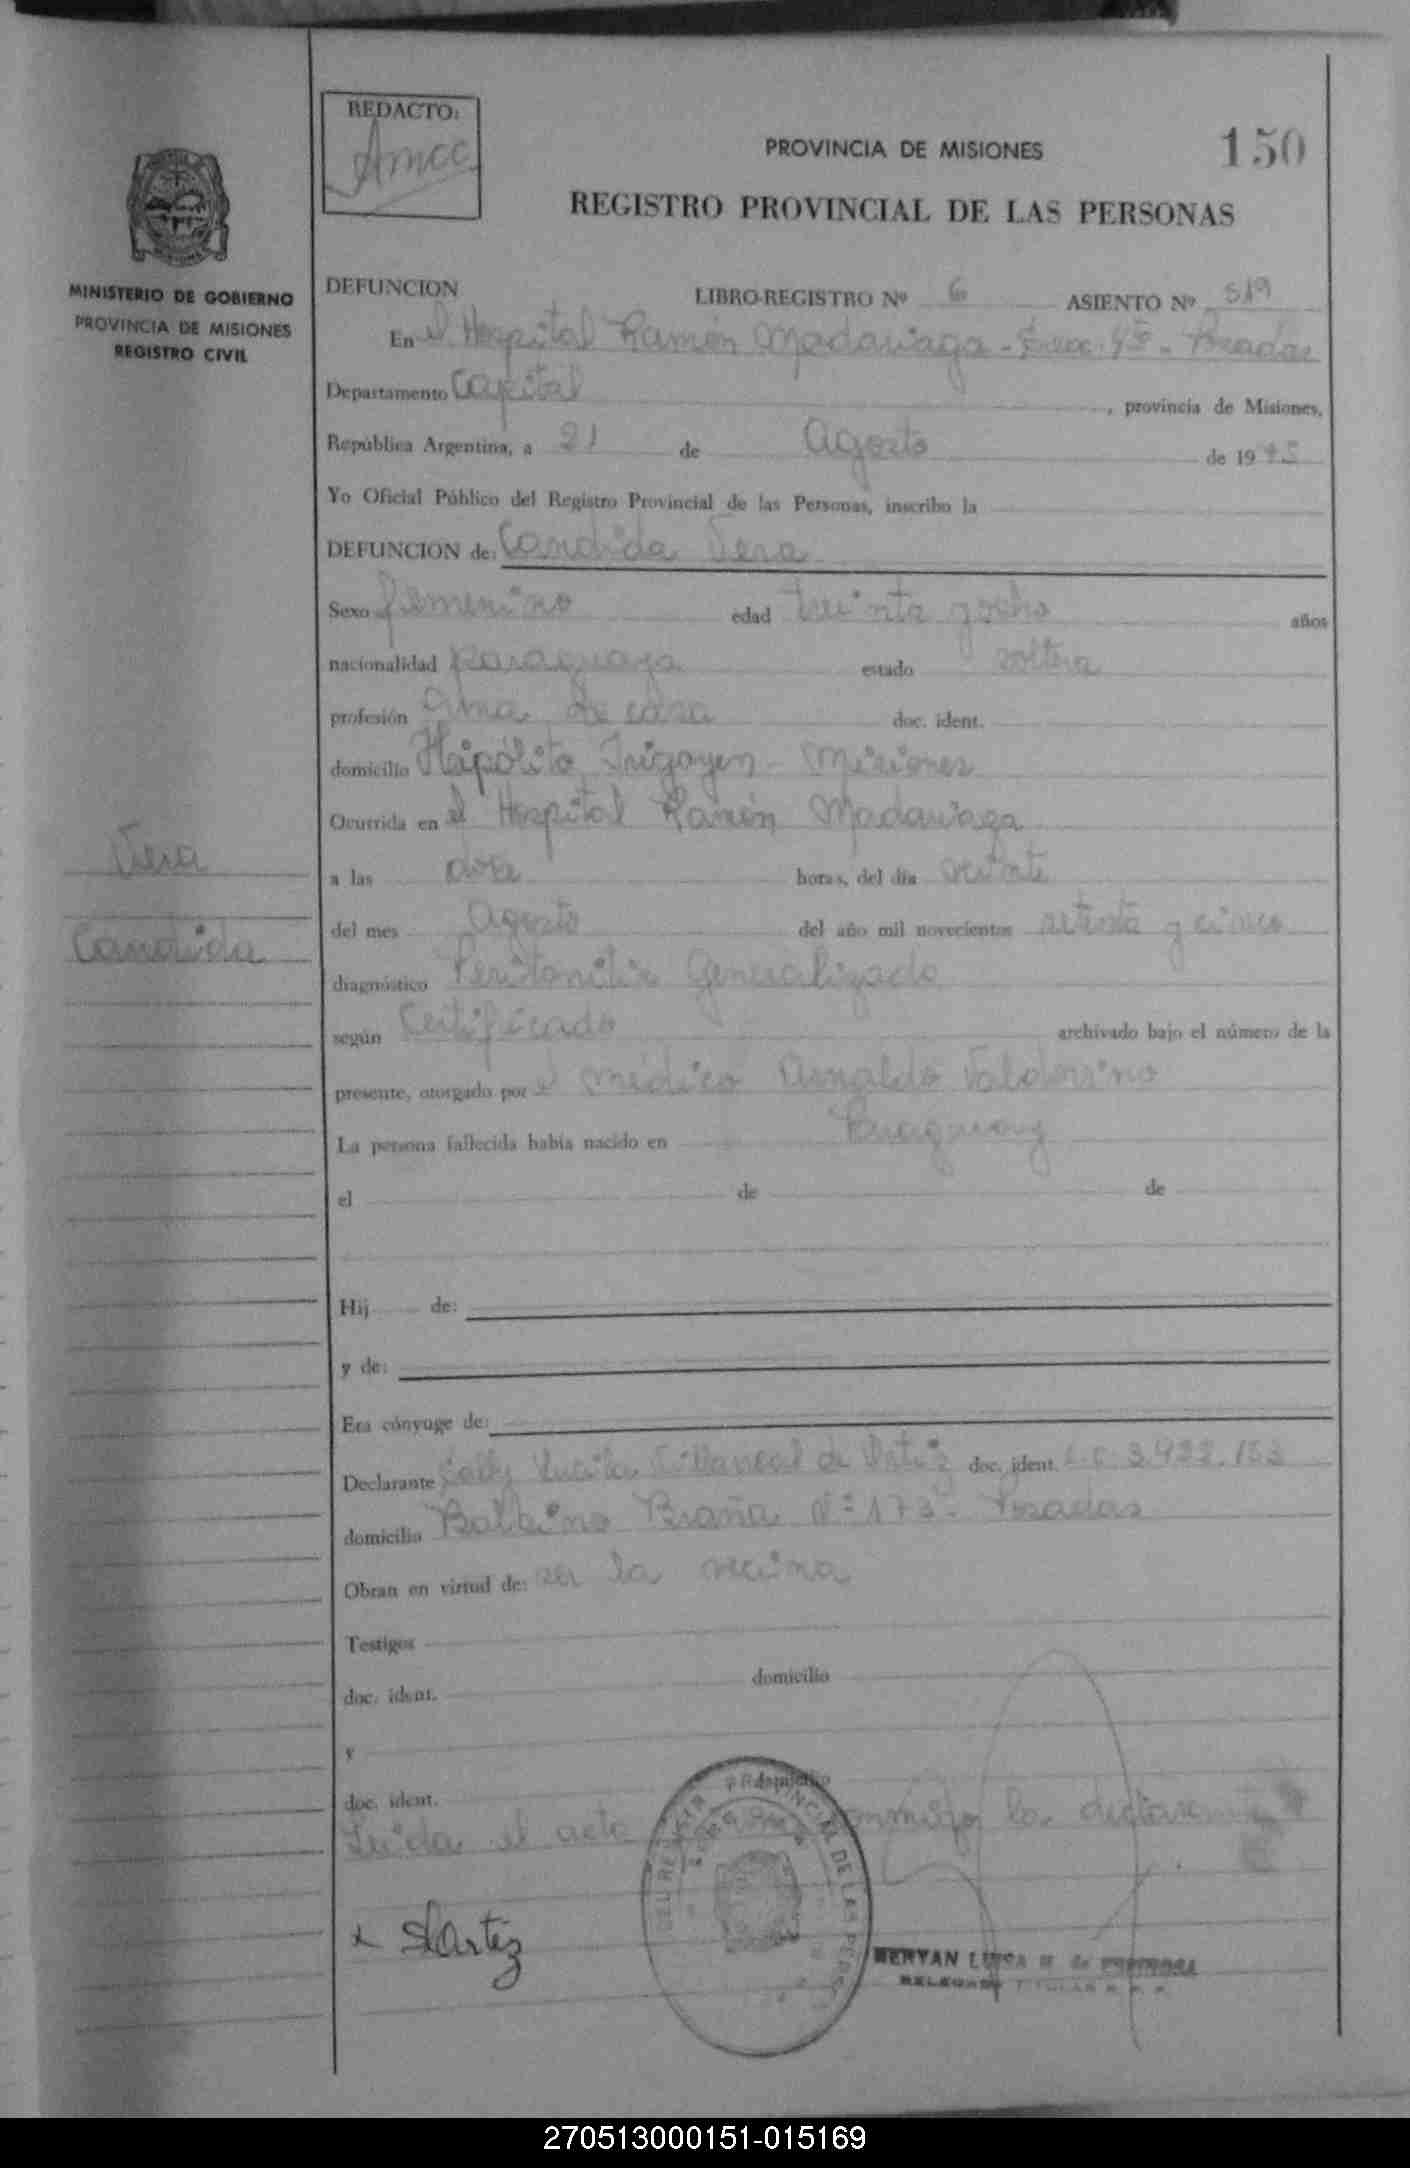 REDACTO:
Amcc
PROVINCIA DE MISIONES
150
REGISTRO PROVINCIAL DE LAS PERSONAS
MINISTERIO DE GOBIERNO
PROVINCIA DE MISIONES
REGISTRO CIVIL
DEFUNCION LIBRO-REGISTRO Nº 6 ASIENTO Nº 519
En el Hospital Ramón Madariaga - Secc. 4ª - Posadas
Departamento Capital, provincia de Misiones,
República Argentina, a 21 de Agosto de 1975
Yo Oficial Público del Registro Provincial de las Personas, inscribo la
DEFUNCION de: Candida Vera
Sexo femenino edad treinta y ocho años
nacionalidad paraguaya estado soltera
profesión Ama de casa doc. ident.
domicilio Hipólito Irigoyen - Misiones
Ocurrida en el Hospital Ramón Madariaga
Vera
a las doce horas, del día veinte
Candida
del mes Agosto del año mil novecientos setenta y cinco
diagnóstico Peritonitis Generalizado
según Certificado archivado bajo el número de la
presente, otorgado por el médico Arnaldo Valdovino
La persona fallecida había nacido en Paraguay
el de de
Hij de:
y de:
Era cónyuge de:
Declarante Lucila Villarreal de Ortiz doc. ident. L.C. 3.922.153
domicilio Balbino Braña Nº 173 - Posadas
Obran en virtud de: ser la vecina
Testigos
doc. ident. domicilio
y
doc. ident. domicilio
Leida el acta conmigo la declarante
DEL REGISTRO PROVINCIAL DE LAS PERS
x SLOrtiz
MERYAN LUISA
DELEGADA TITULAR R. P. P.
270513000151-015169